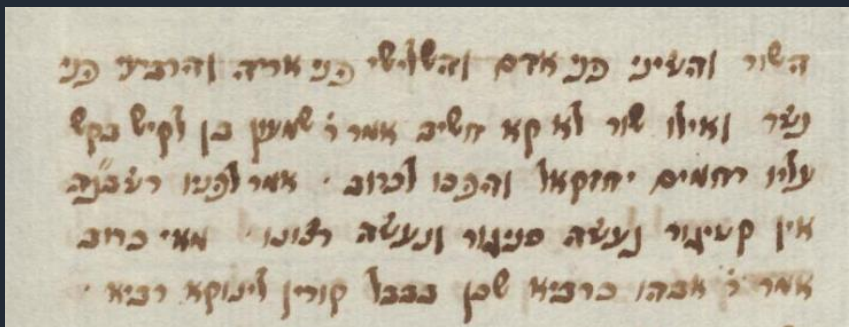 השור והשיני פני אדם והשלישי פני אריה והרביעי פני
נשר ואילו שור לא קא חשיב אמר ר' שמעון בן לקיש בקש
עליו רחמים יחזקאל והפכו לכרוב · אמר לפניו רש̇בע̇
אין קטיגור נעשה סניגור ונעשה רצונו · מאי כרוב
אמר ר' אבהו כרביא שכן בבבל קורין לינוקא רביא ·